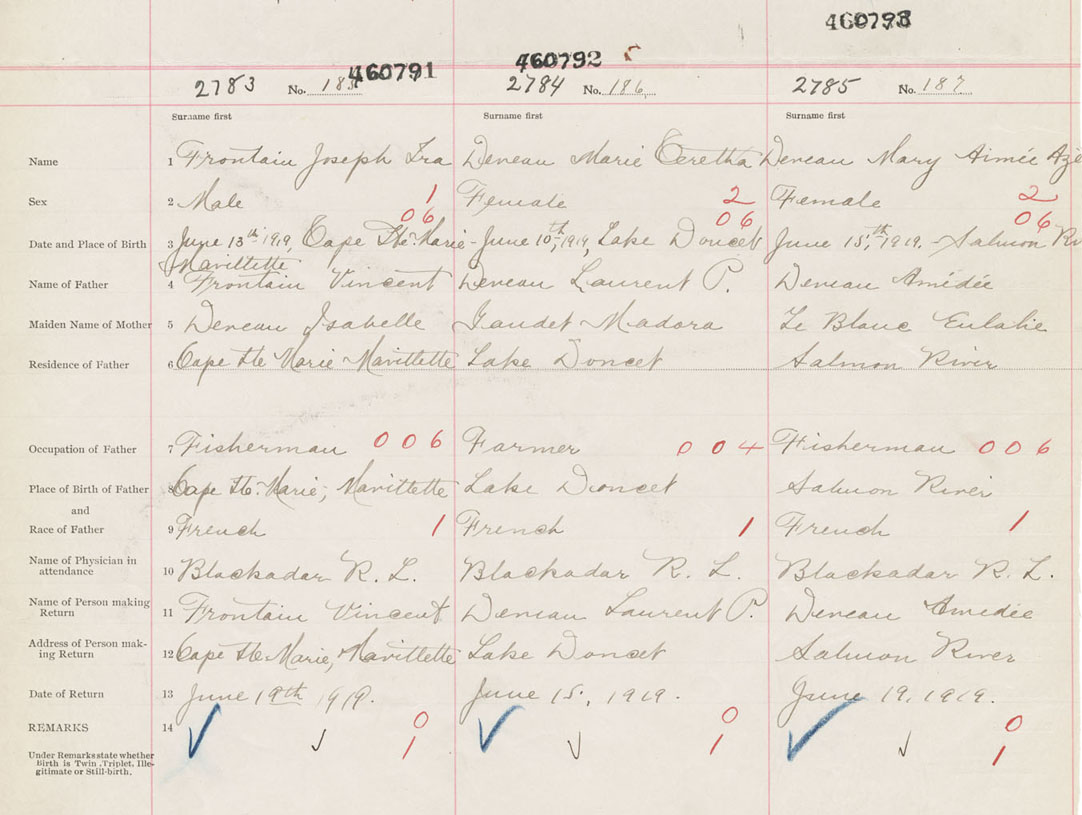 460791 460792 460793
2783 No. 185 2784 No. 186 2785 No. 187
Surname first Surname first Surname first
Name 1 Frontain Joseph Ira Deveau Marie Deveau Mary Aimée
Sex 2 Male 1 Female 2 Female 2
06 06 06
Date and Place of Birth 3 June 13th 1919, Cape Ste. Marie- June 10th, 1919, Lake Doucet June 15th, 1919. Salmon
Mavillette
Name of Father 4 Frontain Vincent Deveau Laurent P. Deveau Amédée
Maiden Name of Mother 5 Deveau Isabelle Gaudet Madora Le Blanc Eulalie
Residence of Father 6 Cape Ste Marie Mavillette Lake Doucet Salmon River
Occupation of Father 7 Fisherman 006 Farmer 004 Fisherman 006
Place of Birth of Father 8 Cape Ste. Marie, Mavillette Lake Doucet Salmon River
and
Race of Father 9 French 1 French 1 French 1
Name of Physician in
attendance 10 Blackadar R. L. Blackadar R. L. Blackadar R. L.
Name of Person making
Return 11 Frontain Vincent Deveau Laurent P. Deveau Amédée
Address of Person mak-
ing Return 12 Cape Ste Marie, Mavillette Lake Doucet Salmon River
Date of Return 13 June 19th 1919. June 15, 1919. June 19, 1919.
REMARKS 14 0 0 0
1 1 1
Under Remarks state whether
Birth is Twin, Triplet, Ille-
gitimate or Still-birth.